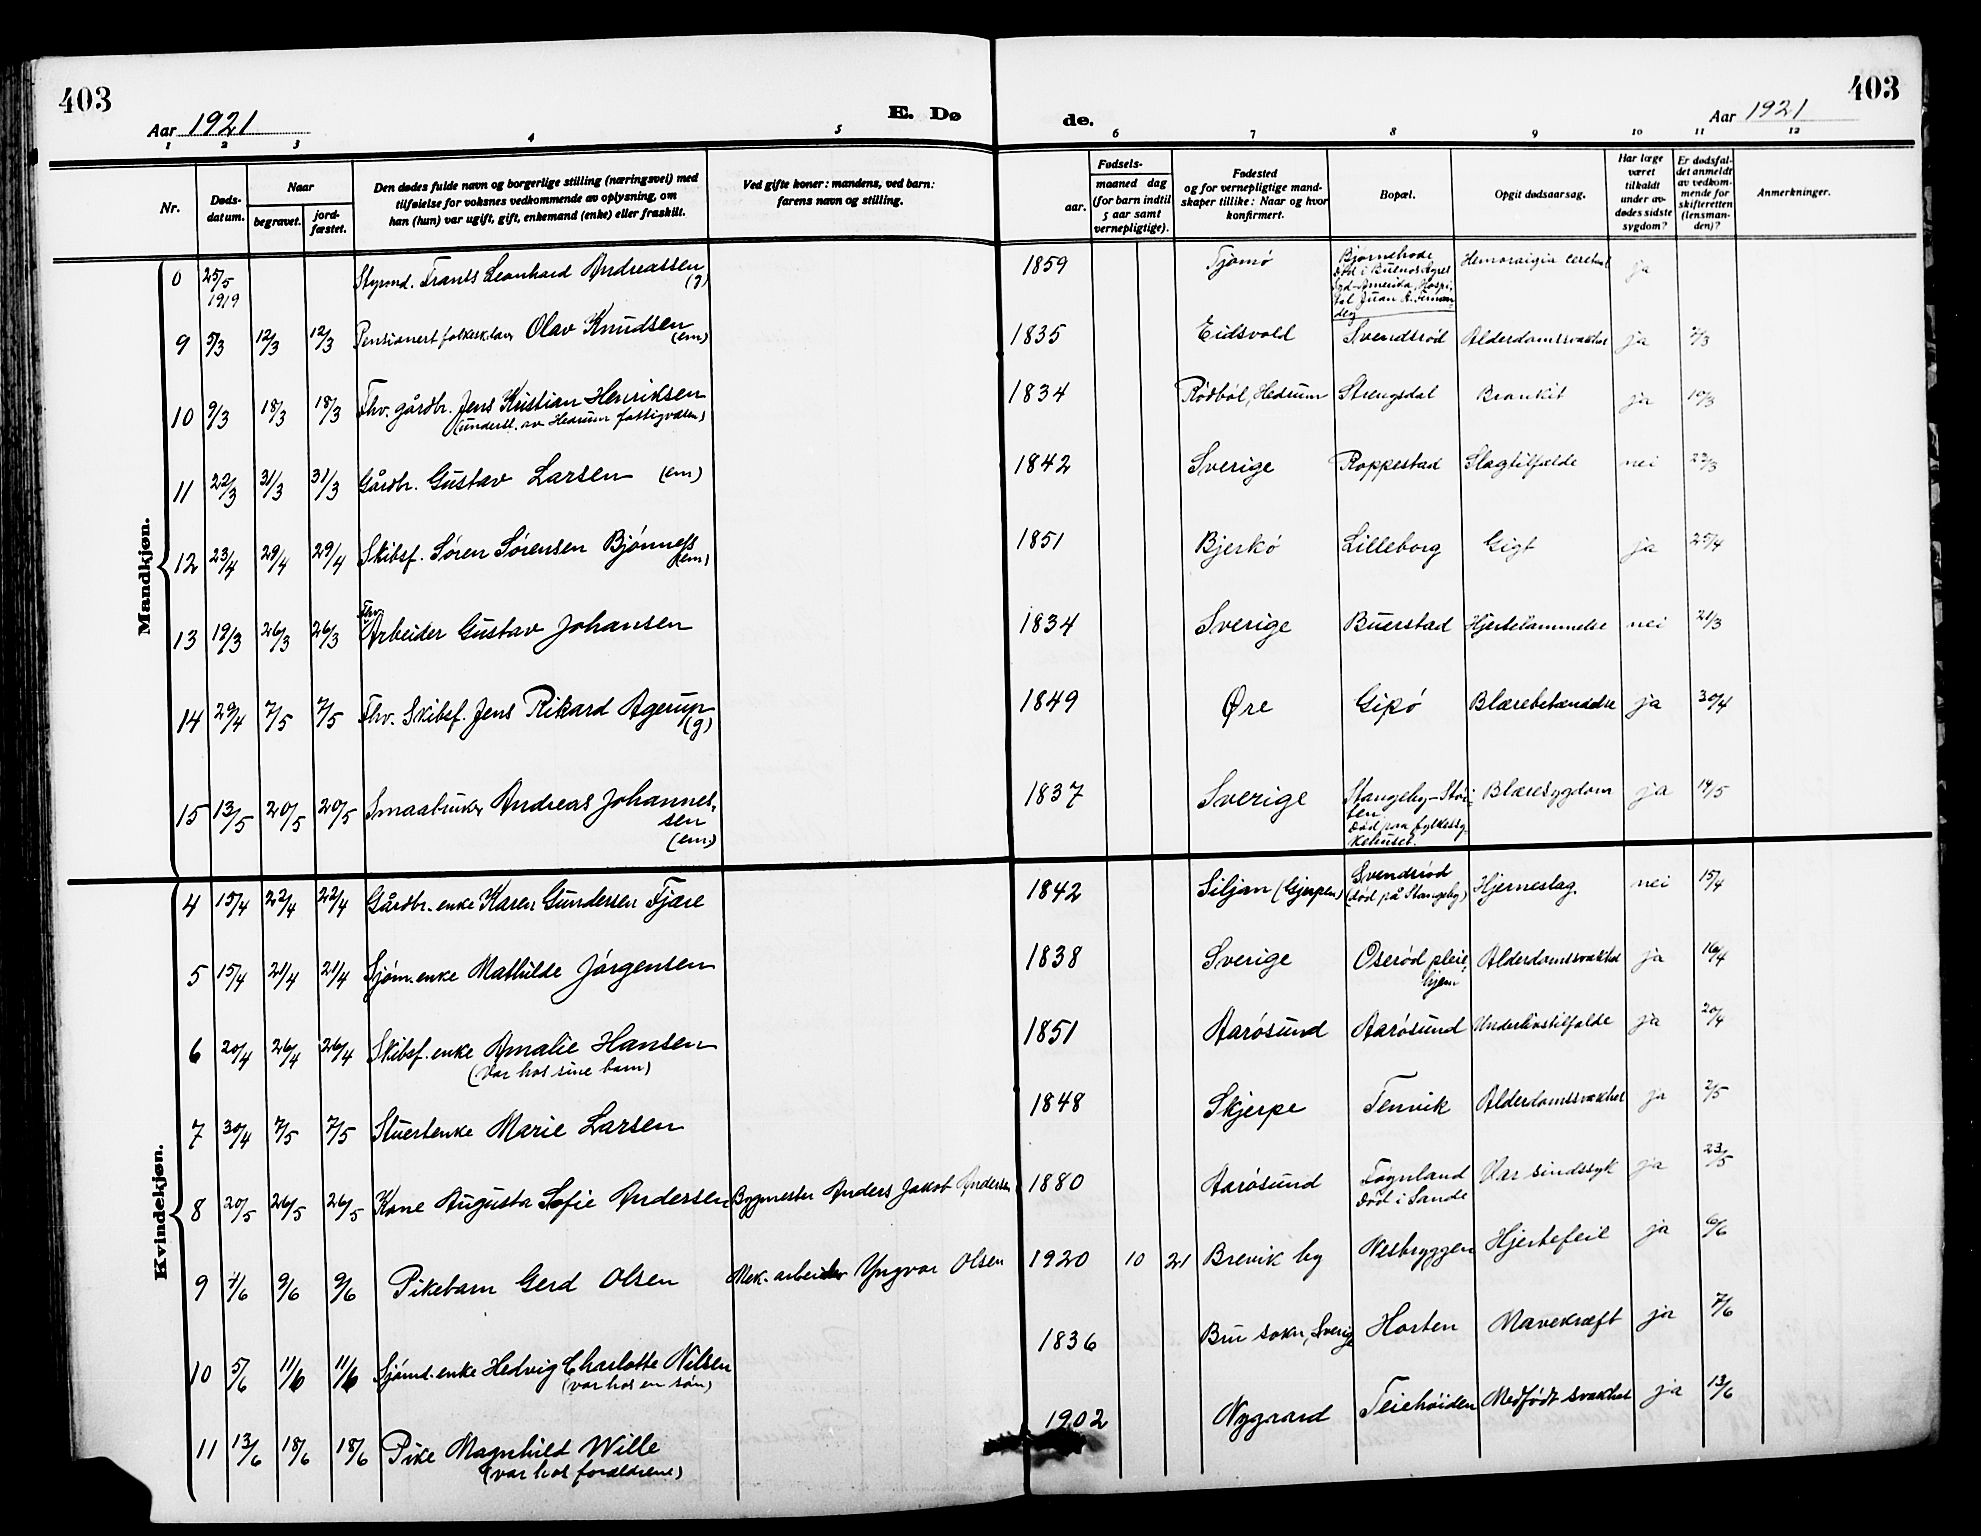 403
Aar 1921
E. Dø
de.
Aar 1921
403
1 2 3 4 5 6 7 8 9 10 11 12
Nr.
Døds-
datum.
Naar
begravet.
jord-
fæstet.
Den dødes fulde navn og borgerlige stilling (næringsvei) med
tilføielse for voksnes vedkommende av oplysning, om
han (hun) var ugift, gift, enkemand (enke) eller fraskilt.
Ved gifte koner: mandens, ved barn:
farens navn og stilling.
Fødsels-
aar.
maaned dag
(for barn indtil
5 aar samt
vernepligtige).
Fødested
og for vernepligtige mand-
skaper tillike: Naar og hvor
konfirmert.
Bopæl.
Opgit dødsaarsag.
Har læge
været
tilkaldt
under av-
dødes sidste
sygdom?
Er dødsfal-
det anmeldt
av vedkom-
mende for
skifteretten
(lensman-
den)?
Anmerkninger.
Mandkjøn.
0 25/5 1919 Styrmd. Frants Leonhard Andreassen (g) 1859 Tjømø Bjørnebode
død i Buenos Ayres
Syd-Amerika, Hospi-
tal Juan A. Fernan-
dez
Hemoraigia cerebral ja
9 5/3 12/3 12/3 Pensionert folkesk.lærer Olav Knudsen (em) 1835 Eidsvold Svendsrød Alderdomssvakhet ja 7/3
10 9/3 18/3 18/3 Fhv. gårdbr. Jens Kristian Henriksen 1834 Rødbøl, Hedrum Strengsdal Bronkit ja 10/3
(underst. av Hedrum fattigvæsen)
11 22/3 31/3 31/3 Gårdbr. Gustav Larsen (em) 1842 Sverige Roppestad Slagtilfælde nei 22/3
12 23/4 29/4 29/4 Skibsf. Søren Sørensen Bjønness (em) 1851 Bjerkø Lilleborg Gigt ja 25/4
13 19/3 26/3 26/3 Fhv. Arbeider Gustav Johansen 1834 Sverige Buerstad Hjertelammelse nei 21/3
14 29/4 7/5 7/5 Fhv. Skibsf. Jens Rikard Agerup (g) 1849 Øre Gipø Blærebetændelse ja 30/4
15 13/5 20/5 20/5 Smaabruker Andreas Johannes-
sen
(em.)
1837 Sverige Stangeby-Støi-
ten
død paa fylkessy-
kehuset.
Blæresygdom ja 14/5
Kvindekjøn.
4 15/4 22/4 22/4 Gårdbr. enke Karen Gundersen Fjære 1842 Siljan (Gjerpen) Svendsrød
(død på Stangeby)
Hjerneslag. nei 15/4
5 15/4 21/4 21/4 Sjøm. enke Mathilde Jørgensen 1838 Sverige Oserød pleie-
hjem
Alderdomssvakhet ja 16/4
6 20/4 26/4 26/4 Skibsf. enke Amalie Hansen 1851 Aarøsund Aarøsund Underlivstilfælde ja 20/4
(Var hos sine barn)
7 30/4 7/5 7/5 Stuertenke Marie Larsen 1848 Skjerpe Tenvik Alderdomssvakhet ja 2/5
8 20/5 26/5 26/5 Kone Augusta Sofie Andersen Bygmester Anders Jakob Andersen 1880 Aarøsund Føgnland
død i Sande
Var sindssyk ja 23/5
9 1/6 9/6 9/6 Pikebarn Gerd Olsen Mek. arbeider Yngvar Olsen 1920 10 21 Brevik by Nesbryggen Hjertefeil ja 6/6
10 5/6 11/6 11/6 Sjømd. enke Hedvig Charlotte Nilsen 1836 Bru sokn, Sverige Horten Mavekræft ja 7/6
(var hos en søn)
11 13/6 18/6 18/6 Pike Magnhild Wille 1902 Nygaard Teiehøiden Medfødt svakhet ja 13/6
(var hos forældrene)